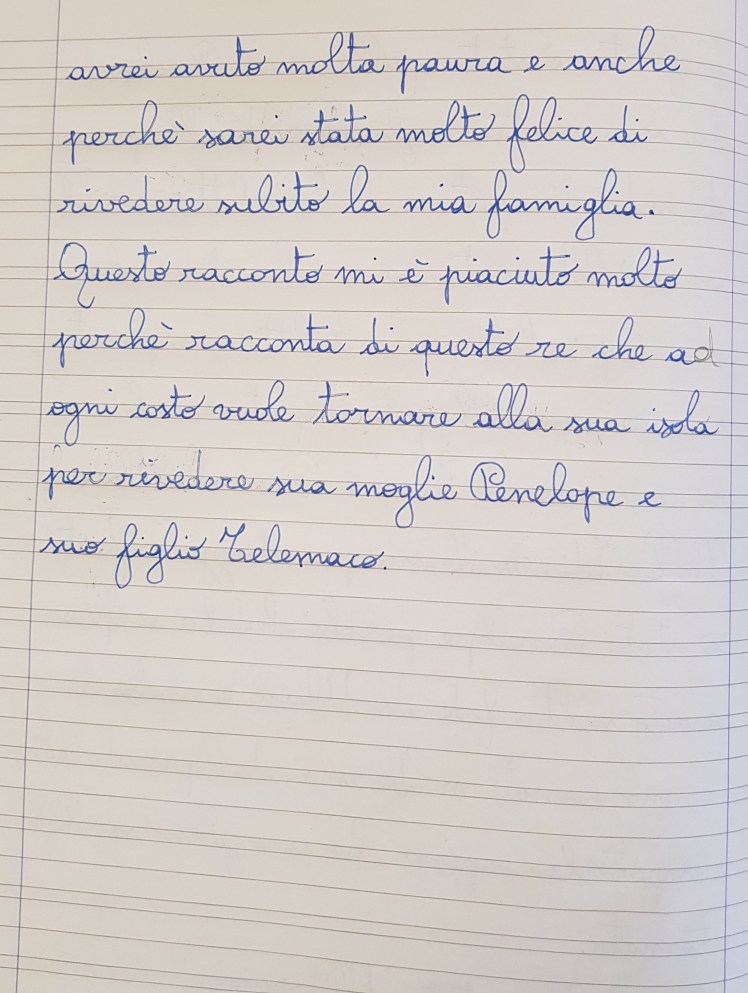 avrei avuto molta paura e anche
perchè sarei stata molto felice di
rivedere subito la mia famiglia.
Questo racconto mi è piaciuto molto
perchè racconta di questo re che ad
ogni costo vuole tornare alla sua isola
per rivedere sua moglie Penelope e
suo figlio Telemaco.